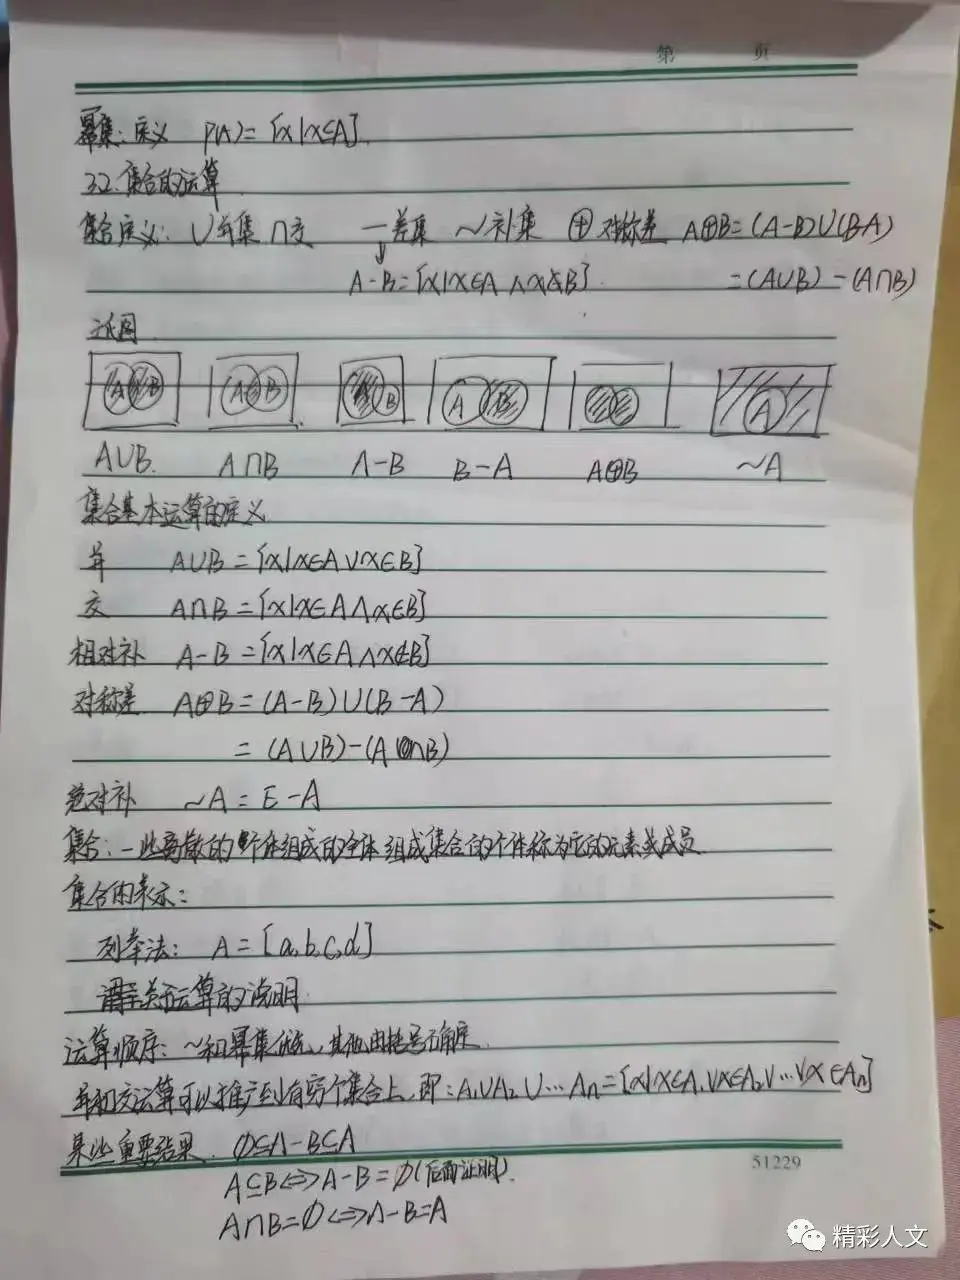 第 页
幂集:定义 P(A)={x|x⊆A}
3.2.集合的运算
集合定义: ∪并集 ∩交 —差集 ~补集 ⊕对称差 A⊕B=(A-B)∪(B-A)
A-B={x|x∈A∧x∉B} =(A∪B)-(A∩B)
文氏图
A B A B A B A B A
A∪B. A∩B A-B B-A A⊕B ~A
集合基本运算的定义
并 A∪B={x|x∈A∨x∈B}
交 A∩B={x|x∈A∧x∈B}
相对补 A-B={x|x∈A∧x∉B}
对称差 A⊕B=(A-B)∪(B-A)
=(A∪B)-(A∩B)
绝对补 ~A=E-A
集合:一些离散的个体组成的全体 组成集合的个体称为它的元素或成员
集合的表示:
列举法: A={a,b,c,d}
关于运算的说明
运算顺序: ~和幂集优先、其他由括号确定
并和交运算可以推广到有穷个集合上,即:A₁∪A₂∪…Aₙ={x|x∈A₁∨x∈A₂∨…∨x∈Aₙ}
某些重要结果. ∅⊆A-B⊆A
51229
A⊆B⇔A-B=∅(后面证明).
A∩B=∅⇔A-B=A
精彩人文